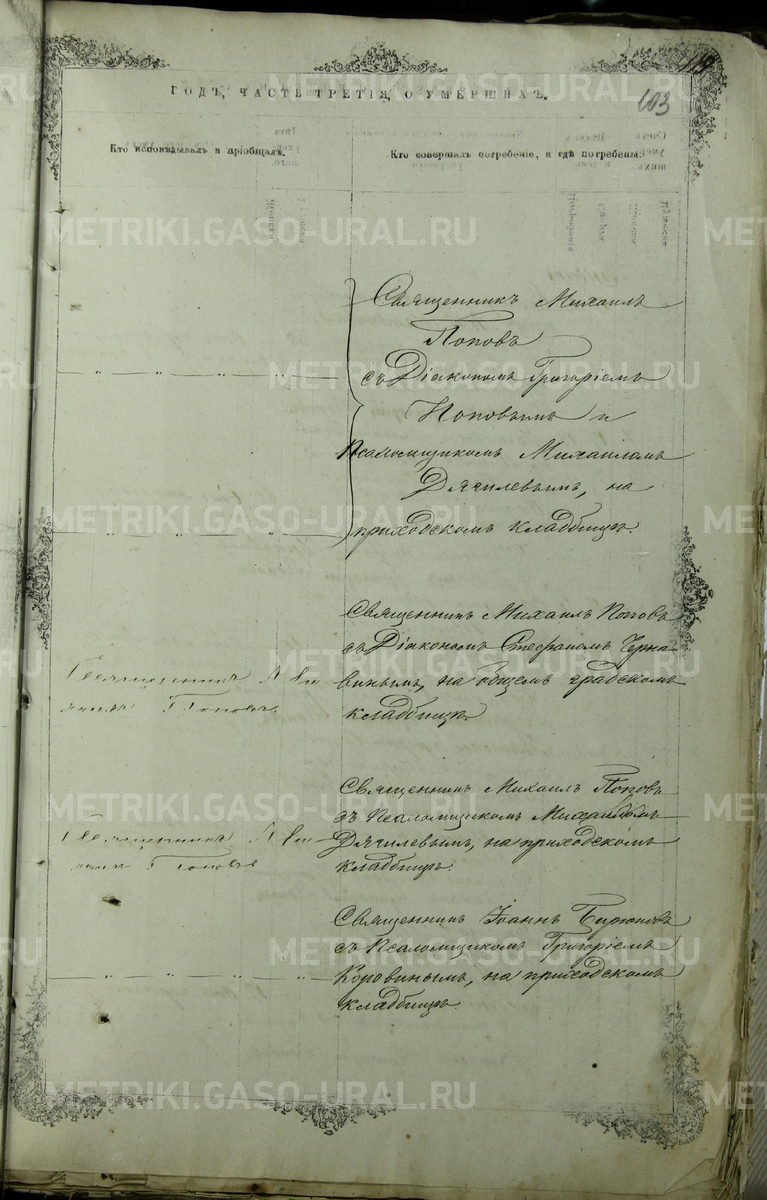 103
ГОДЪ, ЧАСТЬ ТРЕТІЯ, О УМЕРШИХЪ.
Кто исповѣдывалъ и пріобщалъ.
Кто совершалъ погребеніе, и гдѣ погребены.
Священникъ Михаилъ
Поповъ
съ Діакономъ Григоріемъ
Поповымъ и
Псаломщикомъ Михаиломъ
Дягилевымъ, на
приходскомъ кладбищѣ.
Священникъ Михаилъ Поповъ
съ Діакономъ Стефаномъ Черна-
винымъ, на общемъ градскомъ
кладбищѣ.
Священникъ Ми-
хаилъ Поповъ.
Священникъ Михаилъ Поповъ
съ Псаломщикомъ Михаиломъ
Дягилевымъ, на приходскомъ
кладбищѣ.
Священникъ Ми-
хаилъ Поповъ
Священникъ Іоаннъ
съ Псаломщикомъ Григоріемъ
Коровинымъ, на приходскомъ
кладбищѣ.
METRIKI.GASO-URAL.RU